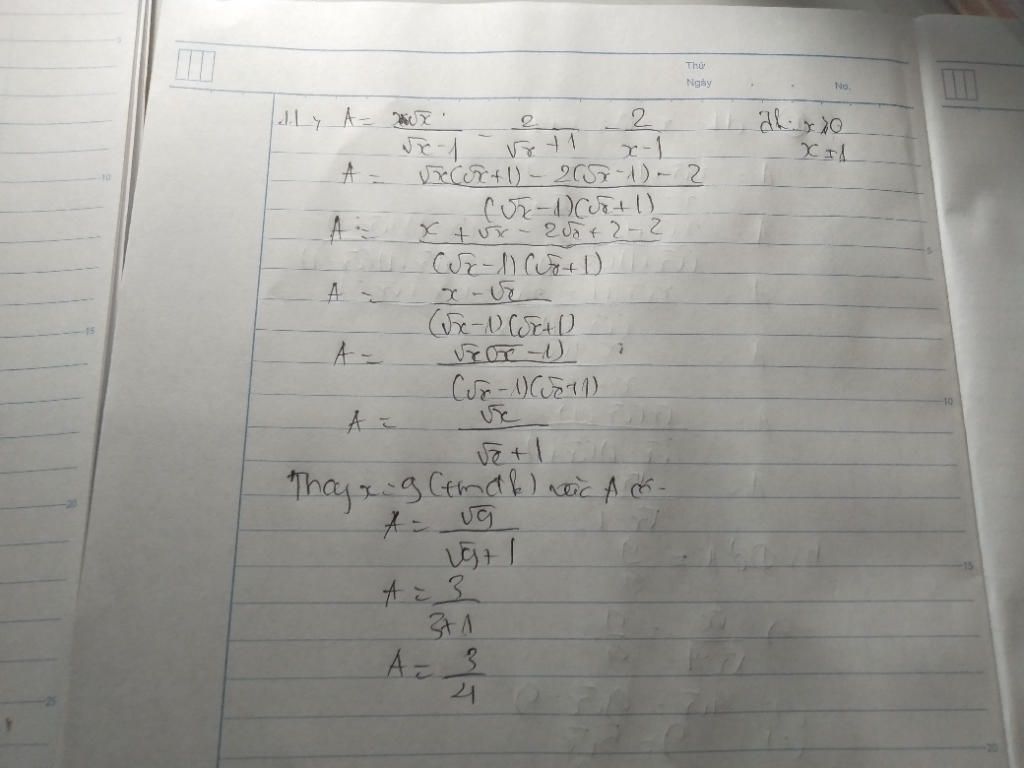 Thứ
Ngày No.
1, A = √x/(√x-1) - 2/(√x+1) - 2/(x-1) đk: x≥0
x≠1
A = (√x(√x+1) - 2(√x-1) - 2)/((√x-1)(√x+1))
A = (x + √x - 2√x + 2 - 2)/((√x-1)(√x+1))
A = (x - √x)/((√x-1)(√x+1))
A = (√x(√x-1))/((√x-1)(√x+1))
A = √x/(√x+1)
Thay x=9 (tmđk) vào A
A = √9/(√9+1)
A = 3/(3+1)
A = 3/4